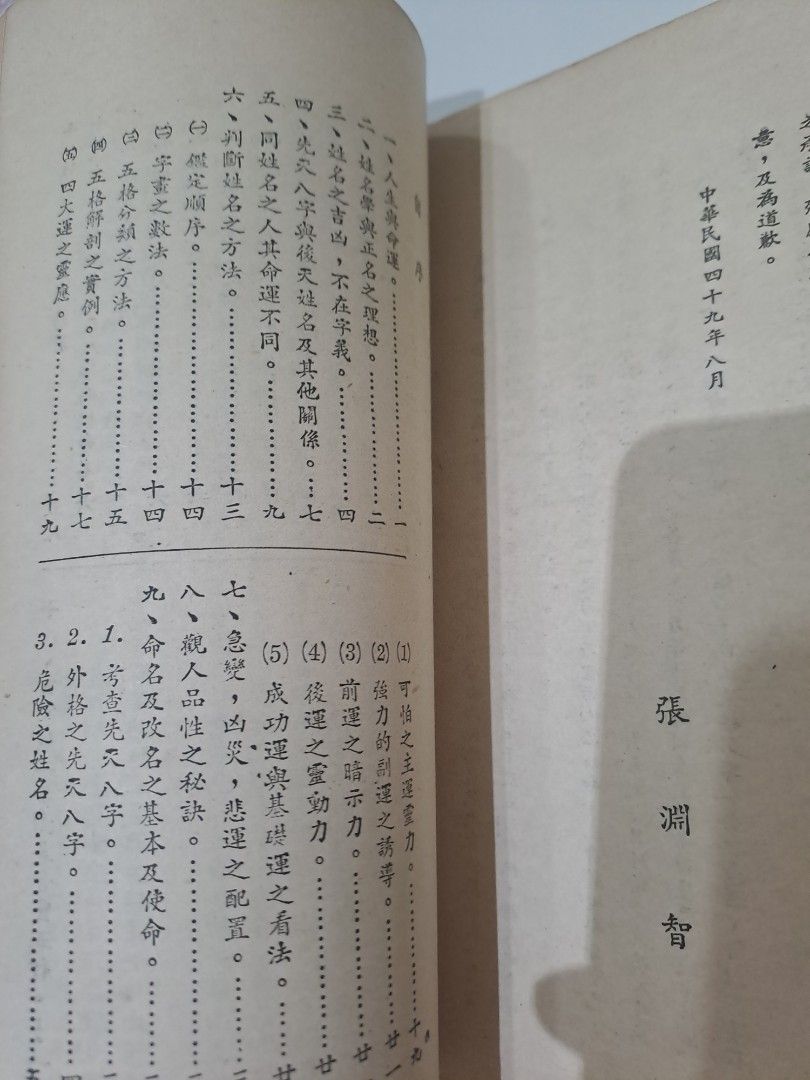 意，及為道歉。
中華民國四十九年八月
張淵智
序
一、人生與命運。…………一
二、姓名學與正名之理想。…………二
三、姓名之吉凶，不在字義。…………四
四、先天八字與後天姓名及其他關係。…七
五、同姓名之人其命運不同。…………九
六、判斷姓名之方法。…………十三
㈠ 鑑定順序。…………十四
㈡ 字畫之數法。…………十四
㈢ 五格分類之方法。…………十五
㈣ 五格解剖之實例。…………十七
㈤ 四大運之靈應。…………十九
(1) 可怕之主運靈力。…………十九
(2) 強力的副運之誘導。…………廿
(3) 前運之暗示力。…………廿一
(4) 後運之靈動力。…………廿
(5) 成功運與基礎運之看法。……廿
七、急變，凶災，悲運之配置。……
八、觀人品性之秘訣。…………
九、命名及改名之基本及使命。……
1. 考查先天八字。…………
2. 外格之先天八字。…………四
3. 危險之姓名。…………五